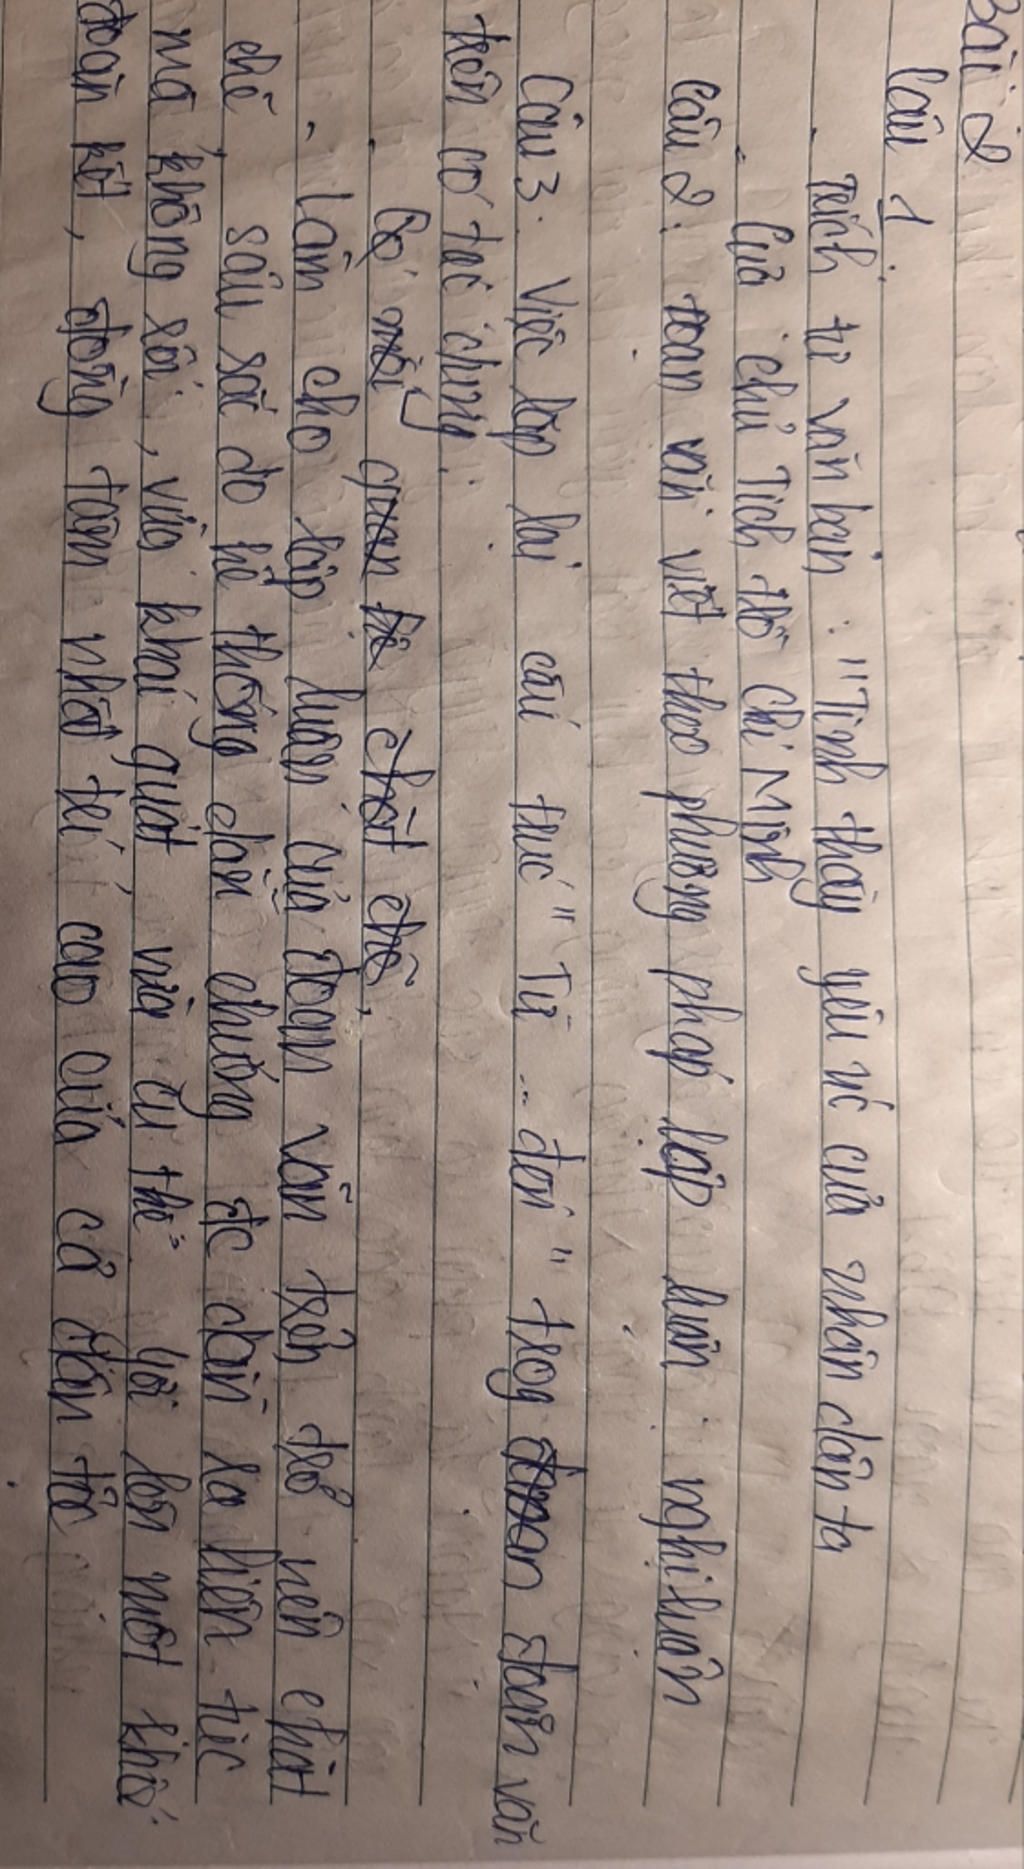 Bài 2
Câu 1.
- Trích từ văn bản : "Tinh thần yêu nước của nhân dân ta
- Của chủ Tịch Hồ Chí Minh
Câu 2: Đoạn văn viết theo phương pháp lập luận nghị luận
Câu 3. Việc lặp lại cấu trúc "Từ ... đến" trog đoạn văn
trên có tác dụng.
- Có mối quan hệ chặt chẽ,
- Làm cho lập luận của đoạn văn trên trở nên chặt
chẽ, sâu sắc do hệ thống dẫn chứng đc dẫn ra liên tục
mà không rối, vừa khái quát vừa cụ thể gợi lên một khối
đoàn kết, đồng tâm nhất trí, cao của cả dân tộc